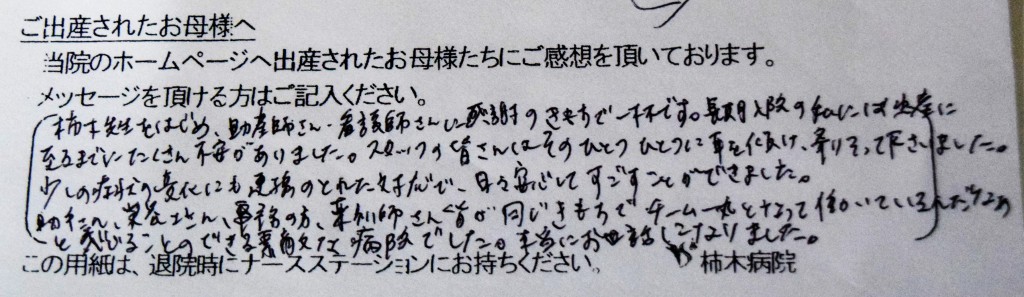 ご出産されたお母様へ
当院のホームページへ出産されたお母様たちにご感想を頂いております。
メッセージを頂ける方はご記入ください。
柿木先生をはじめ、助産師さん・看護師さんに感謝のきもちで一杯です。長期入院の私には出産に
至るまでにたくさん不安がありました。スタッフの皆さんはそのひとつひとつに耳を傾け、寄りそって下さいました。
少しの症状の変化にも連携のとれた対応で、日々安心してすごすことができました。
助手さん、栄養士さん、事務の方、薬剤師さん皆が同じきもちでチーム一丸となって働いているんだなぁ
と感じることのできる素敵な病院でした。本当にお世話になりました。
この用紙は、退院時にナースステーションにお持ちください。 柿木病院